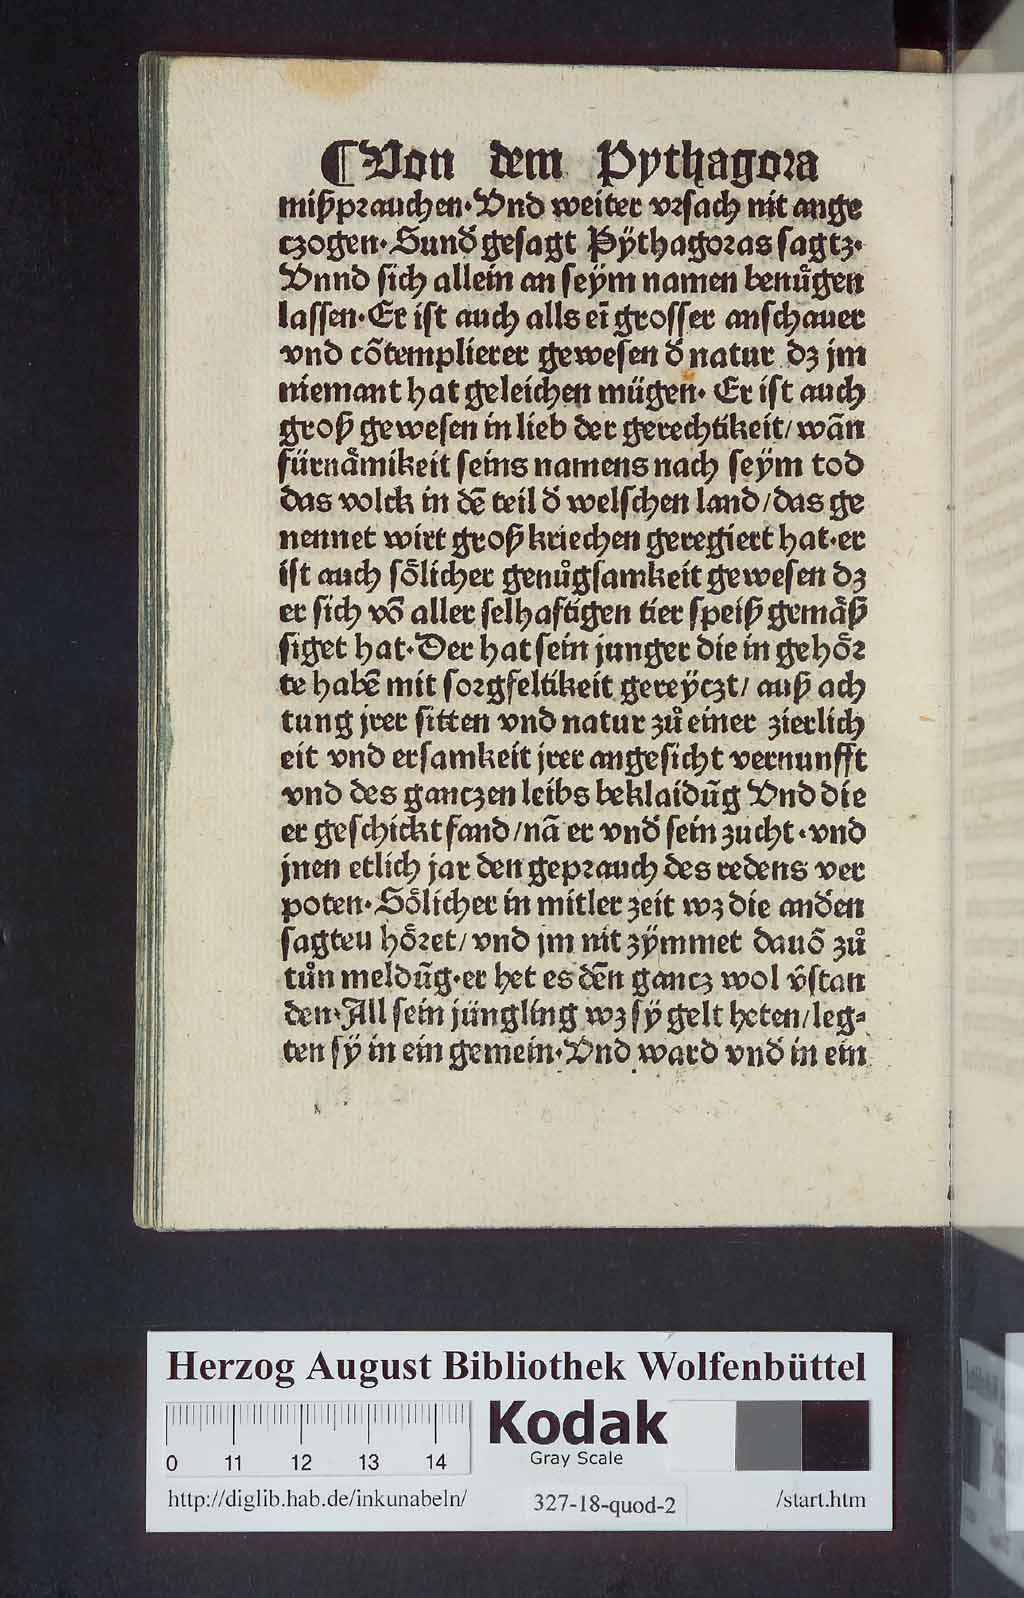 ¶Von dem Pythagora
mißprauchen·Vnd weiter vrsach nit ange
czogen·Sunď gesagt Pÿthagoras sagtz·
Vnnd sich allein an seÿm namen benuͤgen
lassen·Er ist auch alls eī grosser anschauer
vnd cōtemplierer gewesen ď natur dz jm
niemant hat geleichen mügen· Er ist auch
groß gewesen in lieb der gerechtikeit/ wān
fürnaͤmikeit seins namens nach seÿm tod
das volck in dē teil ď welschen land/das ge
nennet wirt groß kriechen geregiert hat·er
ist auch soͤlicher genuͦgsamkeit gewesen dz
er sich vō aller selhaftigen tier speiß gemaͤß
siget hat·Der hat sein junger die in gehoͤr
te habē mit sorgfeltikeit gereÿczt/ auß ach
tung jrer sitten vnd natur zuͦ einer zierlich
eit vnd ersamkeit jrer angesicht vernunfft
vnd des ganczen leibs beklaidūg Vnd die
er geschickt fand/nā er vnď sein zucht·vnd
jnen etlich jar den geprauch des redens ver
poten·Soͤlicher in mitler zeit wz die anďen
sagteu hoͤret/vnd jm nit zÿmmet dauō zuͦ
tuͦn meldūg·er het es dēn gancz wol v̄stan
den·All sein jüngling wz sÿ gelt heten/leg⸗
ten sÿ in ein gemein·Vnd ward vnď in ein
Herzog August Bibliothek Wolfenbüttel
0 11 12 13 14
Kodak
Gray Scale
http://diglib.hab.de/inkunabeln/ 327-18-quod-2 /start.htm